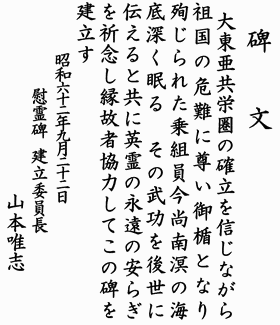 碑文
大東亜共栄圏の確立を信じながら
祖国の危難に尊い御楯となり
殉じられた乗組員今尚南溟の海
底深く眠る その武功を後世に
伝えると共に英霊の永遠の安らぎ
を祈念し縁故者協力してこの碑を
建立す
昭和六十二年九月二十二日
慰霊碑 建立委員長
山本唯志